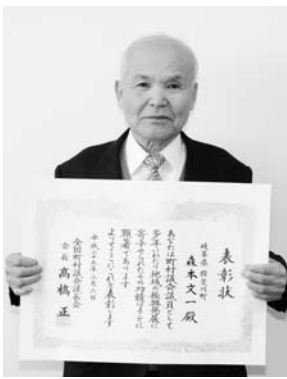 表彰状
岐阜県 揖斐川町
森本文一殿
あなたは町村議会議員として
多年にわたり地域の振興発展に
寄せられたその功績はまことに
顕著であります
よってここにこれを表彰します
平成二十五年二月六日
全国町村議会議長会
会長 髙橋 正